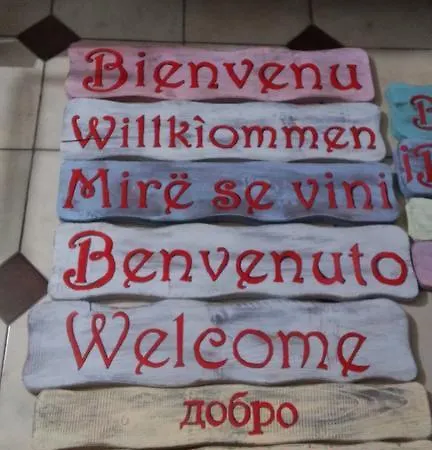 Bienvenu
Willkìommen
Mirë se vini
Benvenuto
Welcome
добро